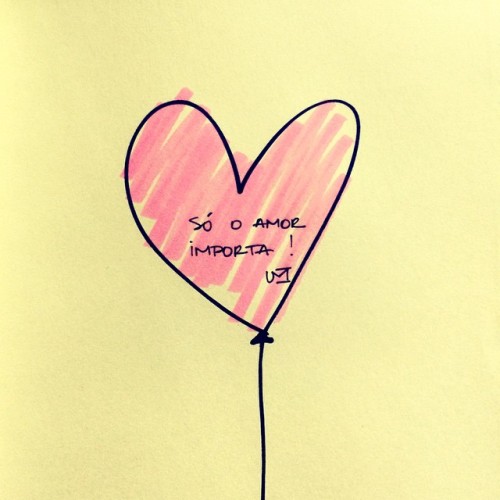 Só o AMOR
iMPORTA !